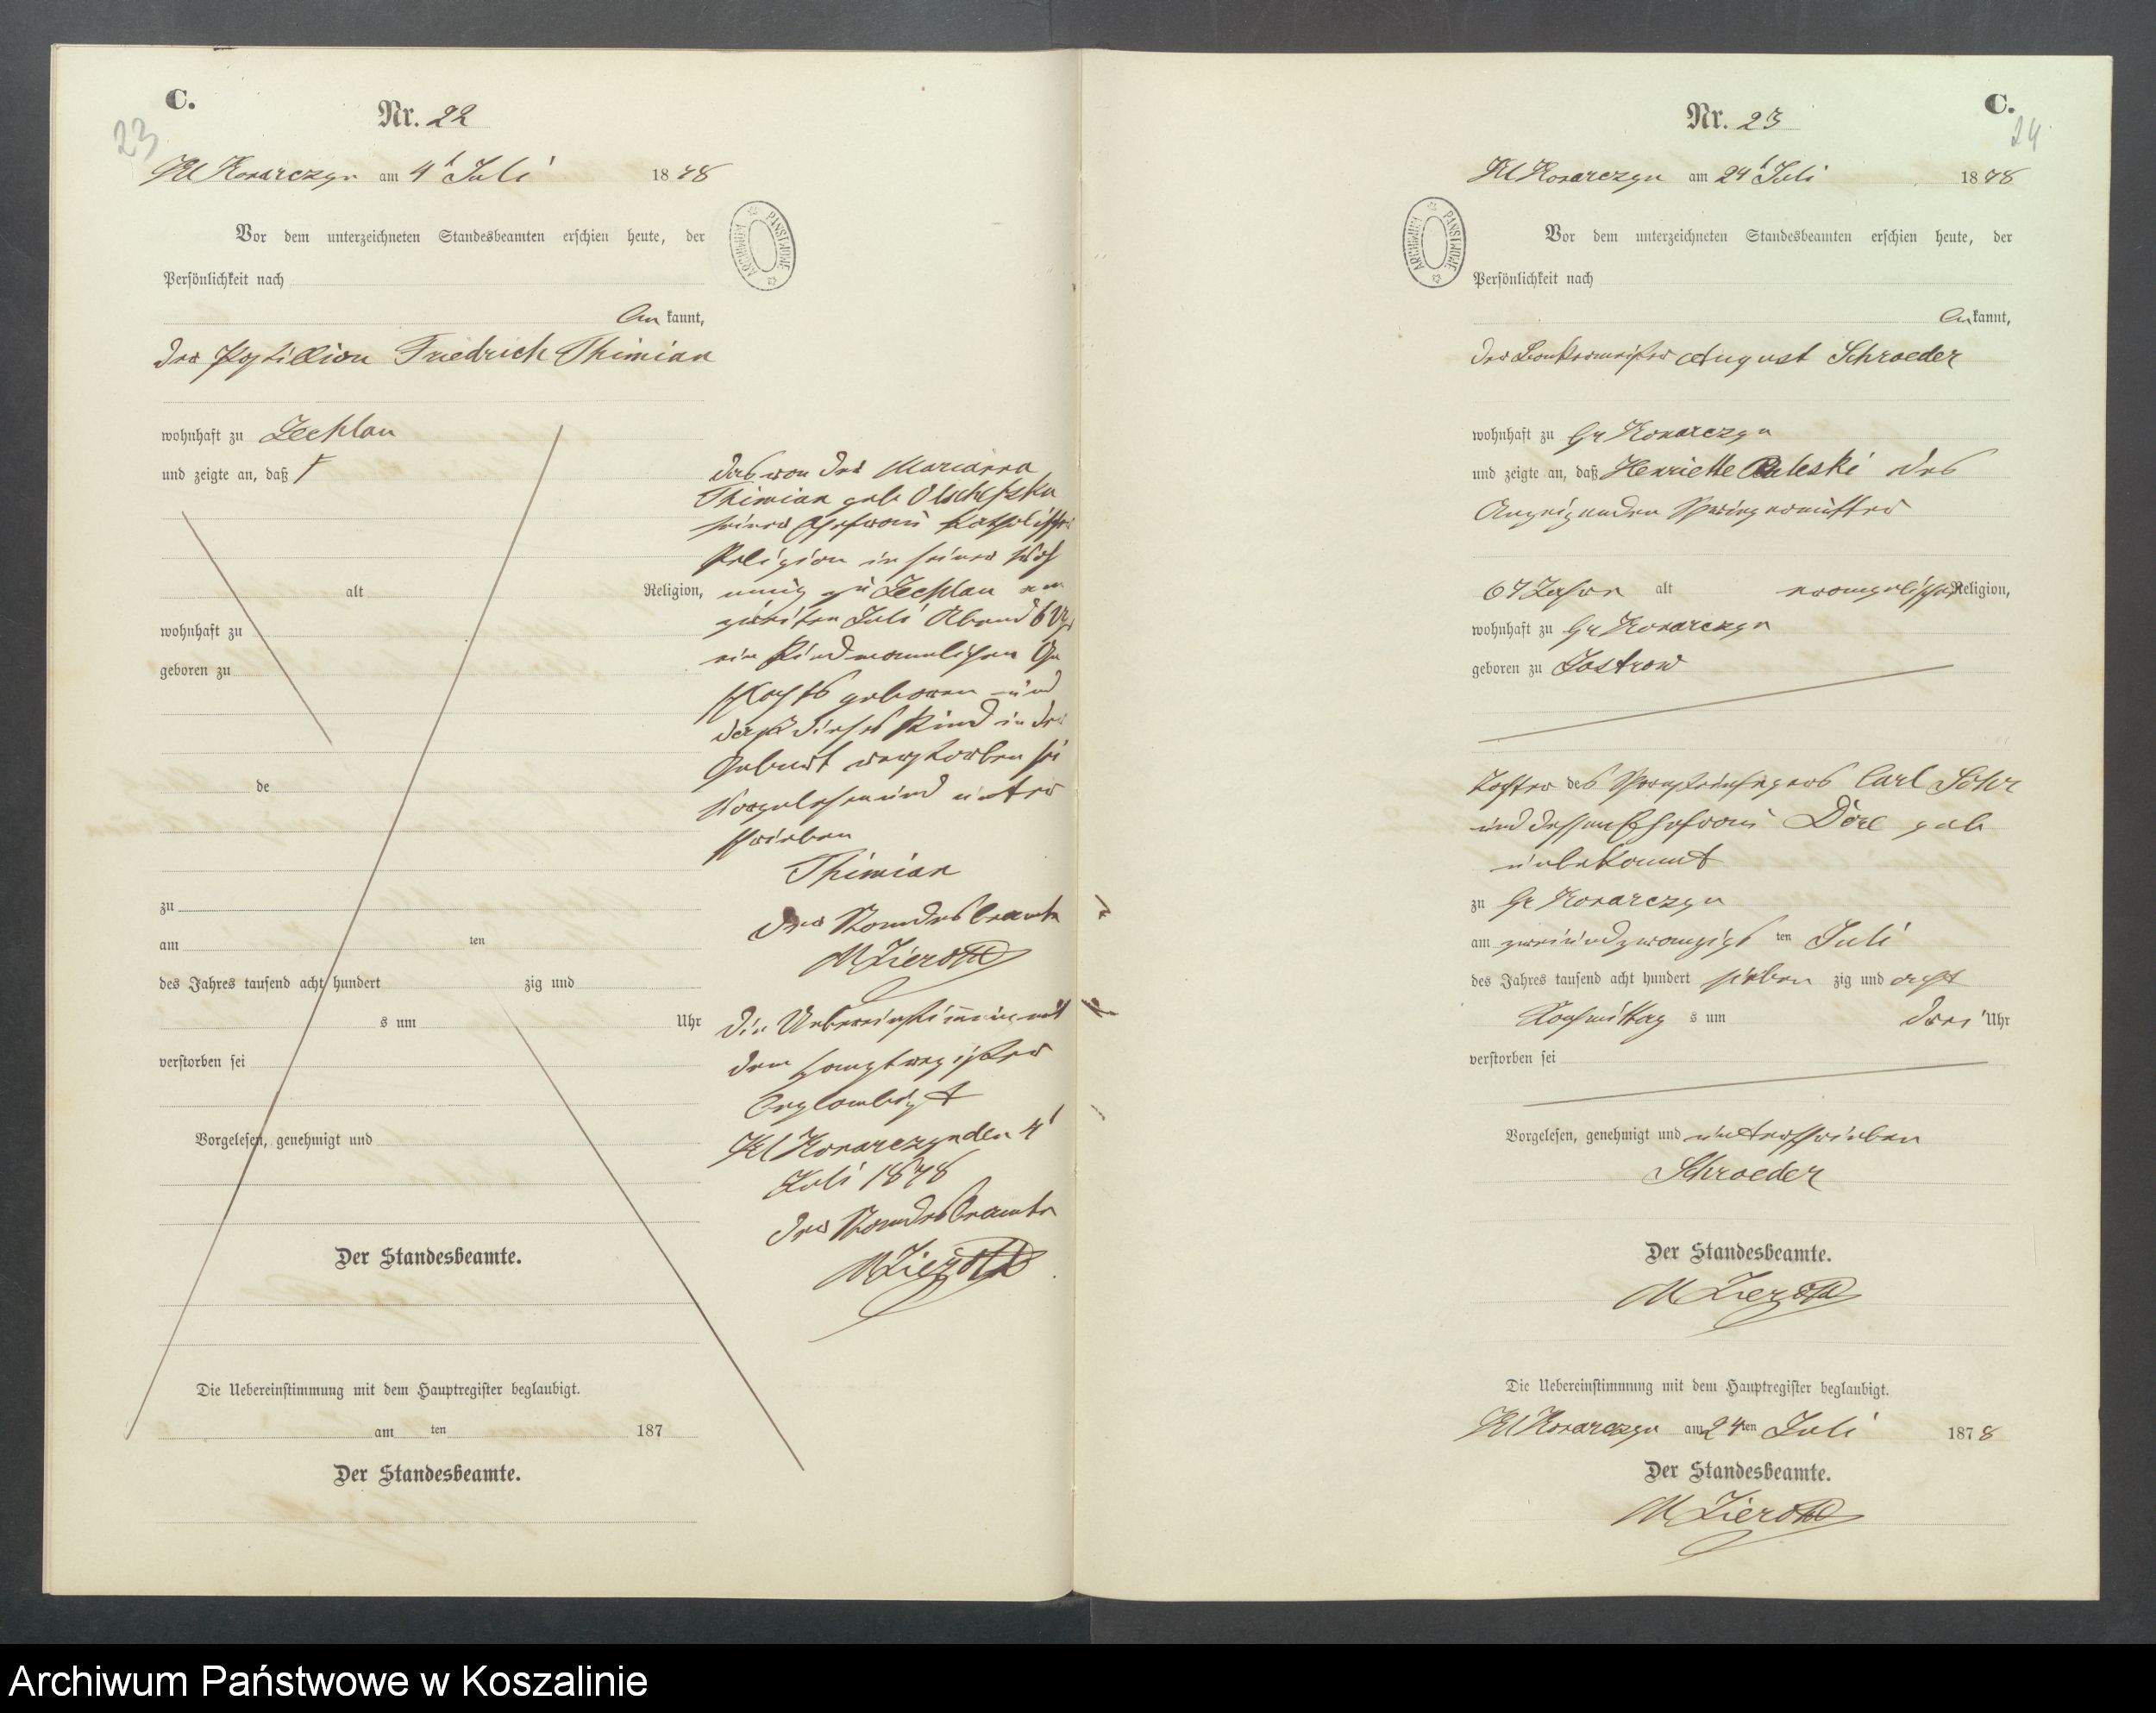 C.
23
Nr. 22
Kl Konarczyn am 4t Juli 1878
ARCHIWUM PAŃSTWOWE
Vor dem unterzeichneten Standesbeamten erschien heute, der
Persönlichkeit nach
be kannt,
der Postillion Friedrich Thimian
wohnhaft zu Zechlau
und zeigte an, daß
alt Religion,
wohnhaft zu
geboren zu
de
zu
am ten
des Jahres tausend acht hundert zig und
s um Uhr
verstorben sei
Vorgelesen, genehmigt und
Der Standesbeamte.
Die Uebereinstimmung mit dem Hauptregister beglaubigt.
am ten 187
Der Standesbeamte.
das von der Marianna
Thimian geb Olschefska
seiner Ehefrau katholischer
Religion in seiner Woh
nung zu Zechlau am
zweiten Juli Abend 6 Uhr
ein Kind männlichen Ge
schlechts geboren und
daß dieses Kind in der
Geburt verstorben sei
Vorgelesen und unter
schrieben
Thimian
Der Standesbeamte
M Zieroth
Die Uebereinstimmung mit
dem Hauptregister
beglaubigt
Kl Konarczyn den 4t
Juli 1878
Der Standesbeamte
M Zieroth
C.
24
Nr. 23
Kl Konarczyn am 24t Juli 1878
ARCHIWUM PAŃSTWOWE
Vor dem unterzeichneten Standesbeamten erschien heute, der
Persönlichkeit nach
be kannt,
der August Schroeder
wohnhaft zu Gr Konarczyn
und zeigte an, daß Henriette Ruleski des
Anzeigenden Schwiegermutter
67 Jahre alt evangelischer Religion,
wohnhaft zu Gr Konarczyn
geboren zu Jastrow
Tochter des Carl Söhr
und dessen Ehefrau Dore geb
unbekannt
zu Gr Konarczyn
am zweiundzwanzigst ten Juli
des Jahres tausend acht hundert sieben zig und acht
Nachmittag s um drei Uhr
verstorben sei
Vorgelesen, genehmigt und unterschrieben
Schroeder
Der Standesbeamte.
M Zieroth
Die Uebereinstimmung mit dem Hauptregister beglaubigt.
Kl Konarczyn am 24ten Juli 1878
Der Standesbeamte.
M Zieroth
Archiwum Państwowe w Koszalinie